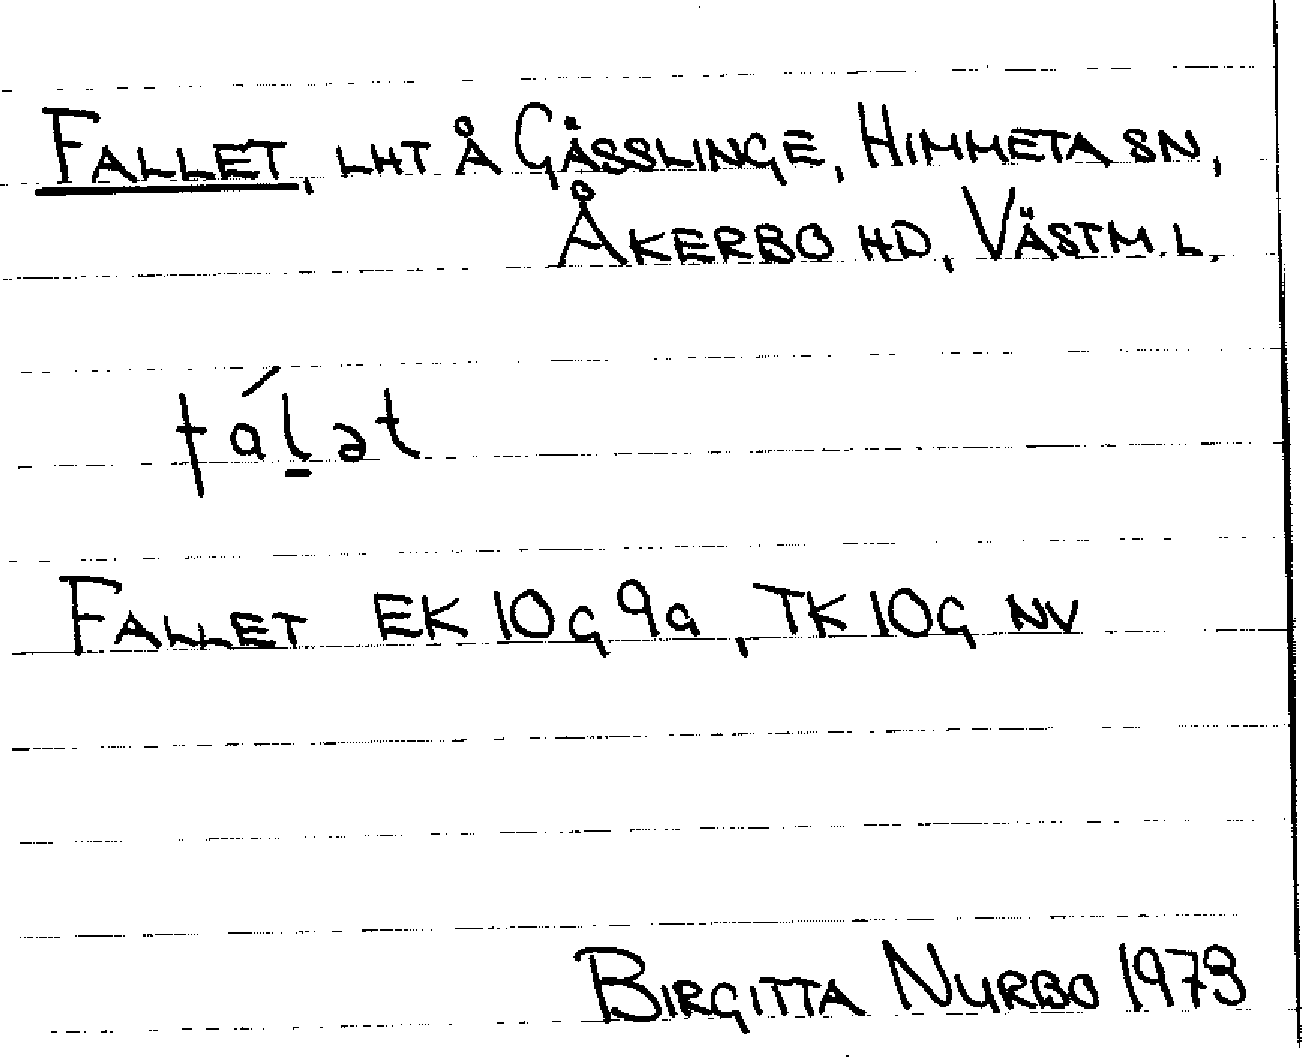 FALLET, LHT Å GÄSSLINGE, HIMMETA SN,
ÅKERBO HD, VÄSTM. L.
fáḻət
FALLET EK 10G 9a, TK 10G NV
BIRGITTA NURBO 1973